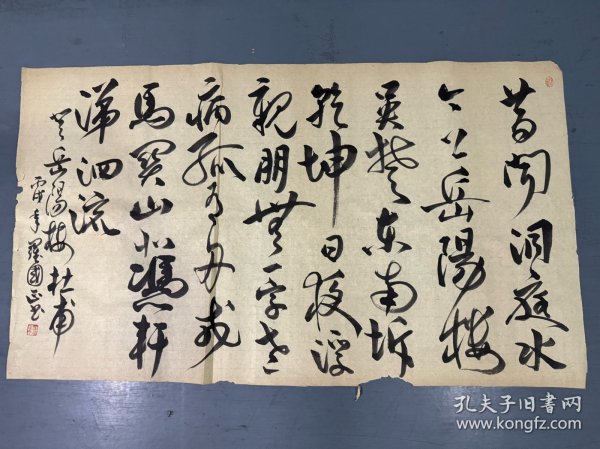 昔闻洞庭水
今上岳陽楼
吴楚东南坼
乾坤日夜浮
親朋無一字老
病孤舟戎
馬関山北憑軒
涕泗流
登岳陽楼杜甫
國正书
孔夫子旧书网
www.kongfz.com